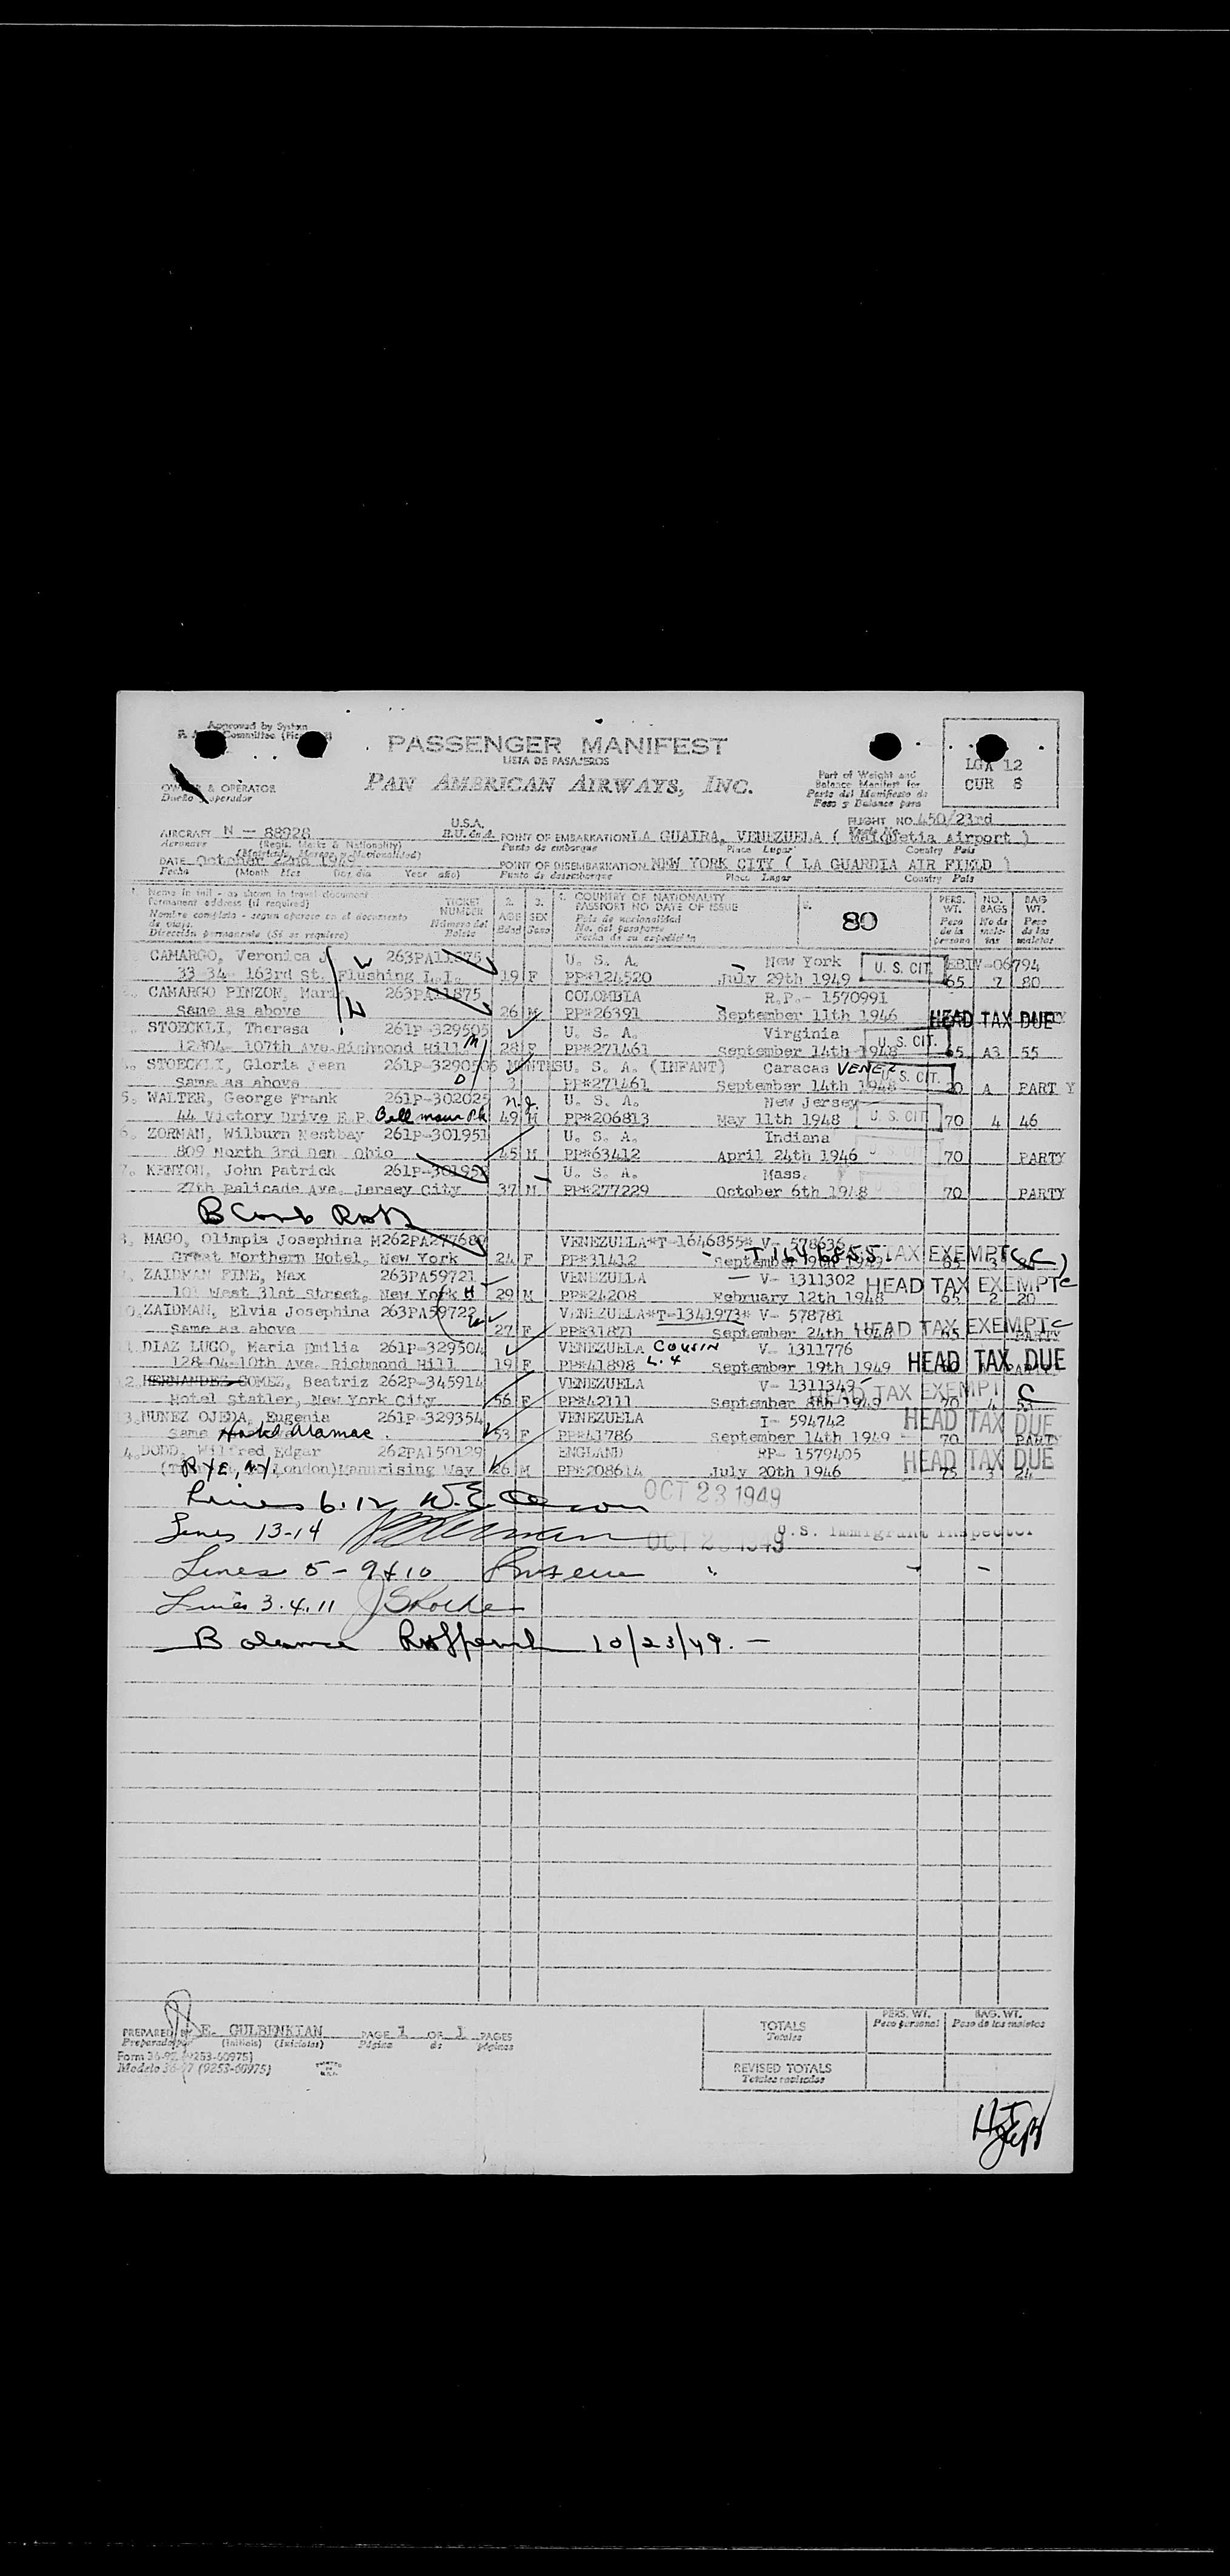 Approved by System
PASSENGER MANIFEST
LISTA DE PASAJEROS
PAN AMERICAN AIRWAYS, INC.
Part of Weight and
Balance Manifest for
Parte del Manifiesto de
Peso y Balance para
LGA 12
CUR 8
OWNER & OPERATOR
Dueño y operador
FLIGHT NO. 450/23rd
AIRCRAFT N - 88928
Aeronave
U.S.A.
E.U. de A.
POINT OF EMBARKATION LA GUAIRA, VENEZUELA ( Maiquetia Airport )
Punto de embarque Place Lugar Country País
DATE October 22nd 1949
Fecha (Month Mes Day día Year año)
POINT OF DISEMBARKATION NEW YORK CITY ( LA GUARDIA AIR FIELD )
Punto de desembarque Place Lugar Country País
1. Name in full - as shown in travel document
Permanent address (if required)
Nombre completo - segun aparece en el documento
de viaje.
Dirección permanente (Si se requiere)
TICKET
NUMBER
Número del
Boleto
2.
AGE
Edad
3.
SEX
Sexo
COUNTRY OF NATIONALITY
PASSPORT NO DATE OF ISSUE
País de nacionalidad
No. del pasaporte
Fecha de su expedición
80
PERS.
WT.
Peso
de la
persona
NO.
BAGS
No de
male-
tas
BAG
WT.
Peso
de las
maletas
CAMARGO, Veronica J. W 263PA11875 U. S. A. New York U. S. CIT. 06794
33-34- 163rd St. Flushing L.I. 19 F PP#124520 July 29th 1949 65 2 80
CAMARGO PINZON, Mario 263PA11875 COLOMBIA R.P.- 1570991
Same as above H 26 M PP#26391 September 11th 1946 HEAD TAX DUE
STOECKLI, Theresa 261P-329505 U. S. A. Virginia U. S. CIT.
12804- 107th Ave. Richmond Hill M 28 F PP#271461 September 14th 1948 65 A3 55
STOECKLI, Gloria Jean 261P-329050 6 MONTHS U. S. A. (INFANT) Caracas VENEZ U. S. CIT.
Same as above D PP#271461 September 14th 1948 20 A PARTY
5. WALTER, George Frank 261P-302025 n.J. U. S. A. New Jersey
44 Victory Drive E.P. Bellmawr Pk 49 M PP#206813 May 11th 1948 U. S. CIT 70 4 46
6. ZORMAN, Wilburn Westbay 261P-301951 U. S. A. Indiana
809 North 3rd Den Ohio 45 M PP#63412 April 24th 1946 70 PARTY
7. KENYON, John Patrick 261P-301952 U. S. A. Mass.
27th Palicade Ave. Jersey City 37 M PP#277229 October 6th 1948 70 PARTY
8. MAGO, Olimpia Josephina M 262PA277680 VENEZUELLA*T-1646855* V- 578636
Great Northern Hotel, New York 24 F PP#31412 September 19th 1949 T 1646855. TAX EXEMPT (C)
9. ZAIDMAN FINE, Max 263PA59721 VENEZUELLA V- 1311302 HEAD TAX EXEMPT C
101 West 31st Street, New York H 29 M PP#24208 February 12th 1948 65 2 20
10. ZAIDMAN, Elvia Josephina 263PA59722 VENEZUELLA*T-1341973* V- 578781
Same as above W 27 F PP#31871 September 24th 1948 HEAD TAX EXEMPT C
11. DIAZ LUGO, Maria Emilia 261P-329504 VENEZUELA COUSIN V- 1311776
128-04-10th Ave. Richmond Hill 19 F PP#41898 L.4 September 19th 1949 HEAD TAX DUE
12. HERNANDEZ GOMEZ, Beatriz 262P-345914 VENEZUELA V- 1311349
Hotel Statler, New York City 56 F PP#42111 September 8th 1949 HEAD TAX EXEMPT C 70 4 53
13. NUNEZ OJEDA, Eugenia 261P-329354 VENEZUELA I- 594742 HEAD TAX DUE
Same Hotel Alamac 53 F PP#41786 September 14th 1949 70 PARTY
14. DODD, Wilfred Edgar 262PA150129 ENGLAND RP- 1579405 HEAD TAX DUE
RYE, NY, London) Manurising Way 46 M PP#208614 July 20th 1946 75 3 24
Lines 6.12 OCT 23 1949
Lines 13-14 OCT 23 1949 U.S. Immigrant Inspector
Lines 5 - 9 + 10
Lines 3.4.11
Balance 10/23/49. —
PREPARED BY E. GULBENKIAN PAGE 1 OF 1 PAGES
Preparado por (Initials) (Iniciales) Página de páginas
Form 36-97 (9253-60975)
Modelo 36-97 (9253-60975)
TOTALS
Totales
PERS. WT.
Peso personal
BAG. WT.
Peso de las maletas
REVISED TOTALS
Totales revisados